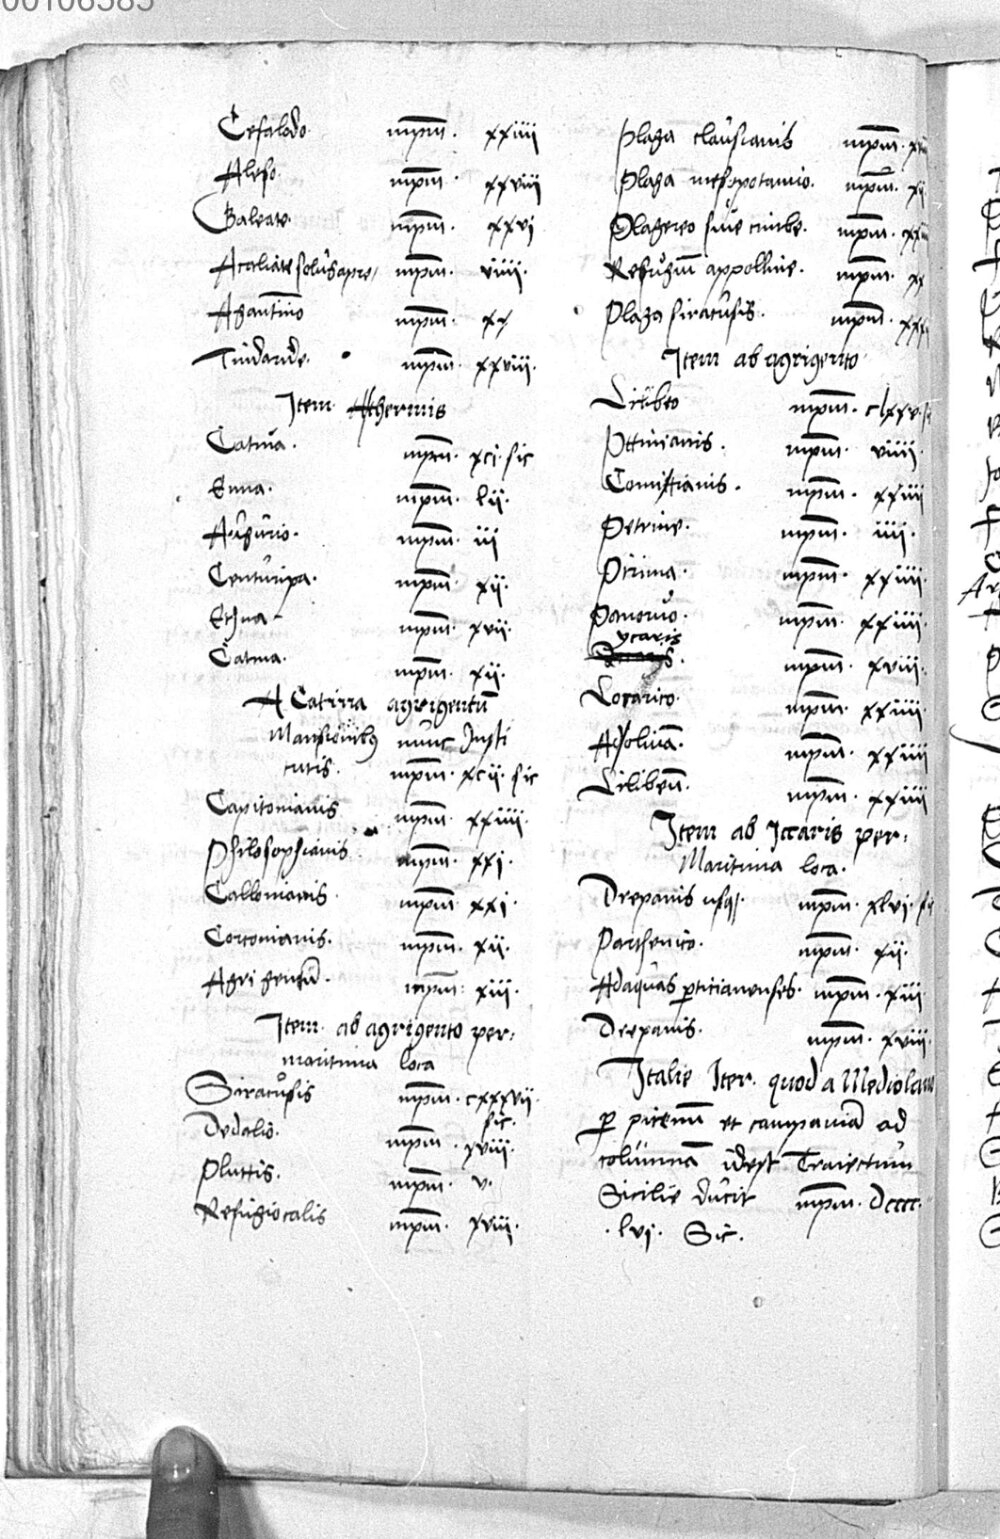 00106585
Cefalodo. mpm̅. xxiiii
Aleso. mpm̅. xxviii
Galeate. mpm̅. xxvi
Acaliate solusapre/ mpm̅. viiii.
Agantino mpm̅. xx
Tindaride. mpm̅. xxviii.
Item Athermis
Catina. mpm̅. xci. sic
Enna. mpm̅. lii.
Augurio. mpm̅. iii
Centuripa. mpm̅. xii.
Ethna mpm̅. xvii.
Catina. mpm̅. xii.
A Catina agrigentū
Mansionibꝫ nunc Insti
tutis. mpm̅. xcii. sic
Capitonianis mpm̅. xxiiii.
Philosophianis. mpm̅. xxi.
Callonianis. mpm̅. xxi.
Corconianis. mpm̅. xii.
Agrigentū. mpm̅. xiii.
Item ab agrigento per.
maritima loca
Siracusis mpm̅. cxxxvii.
sic.
Dedalio. mpm̅. xviii.
Plintis. mpm̅. v.
Refugiocalis mpm̅. xviii.
Plaga clausianis mpm̅.
Plaga mesopotamio. mpm̅.
Plagereo siue cimbe. mpm̅.
Refugiū appolline. mpm̅.
Plaga siracusis. mpm̅.
Item ab agrigento
Lilibeo mpm̅. clxxv.
Pitinianis. mpm̅. viiii.
Comitianis. mpm̅. xxiiii
Petrine. mpm̅. iiii.
Pirina. mpm̅. xxiiii.
Panormo. mpm̅. xxiiii.
ycaris
mpm̅. xviii.
Locarico. mpm̅. xxiiii.
Adoliuā. mpm̅. xxiiii
Lilibeū. mpm̅. xxiiii
Item ab Iccaris per.
Maritima loca.
Drepanis usqꝫ. mpm̅. xlvi.
Parthenico. mpm̅. xii.
Adaquas perticianenses. mpm̅. xiii
Drepanis. mpm̅. xviii.
Italie Iter. quod a Mediolano
ꝑ picenū et campaniā ad
columnā idest Traiectum
Sicilie ducit mpm̅. Dcccc.
.lvi. Sic.